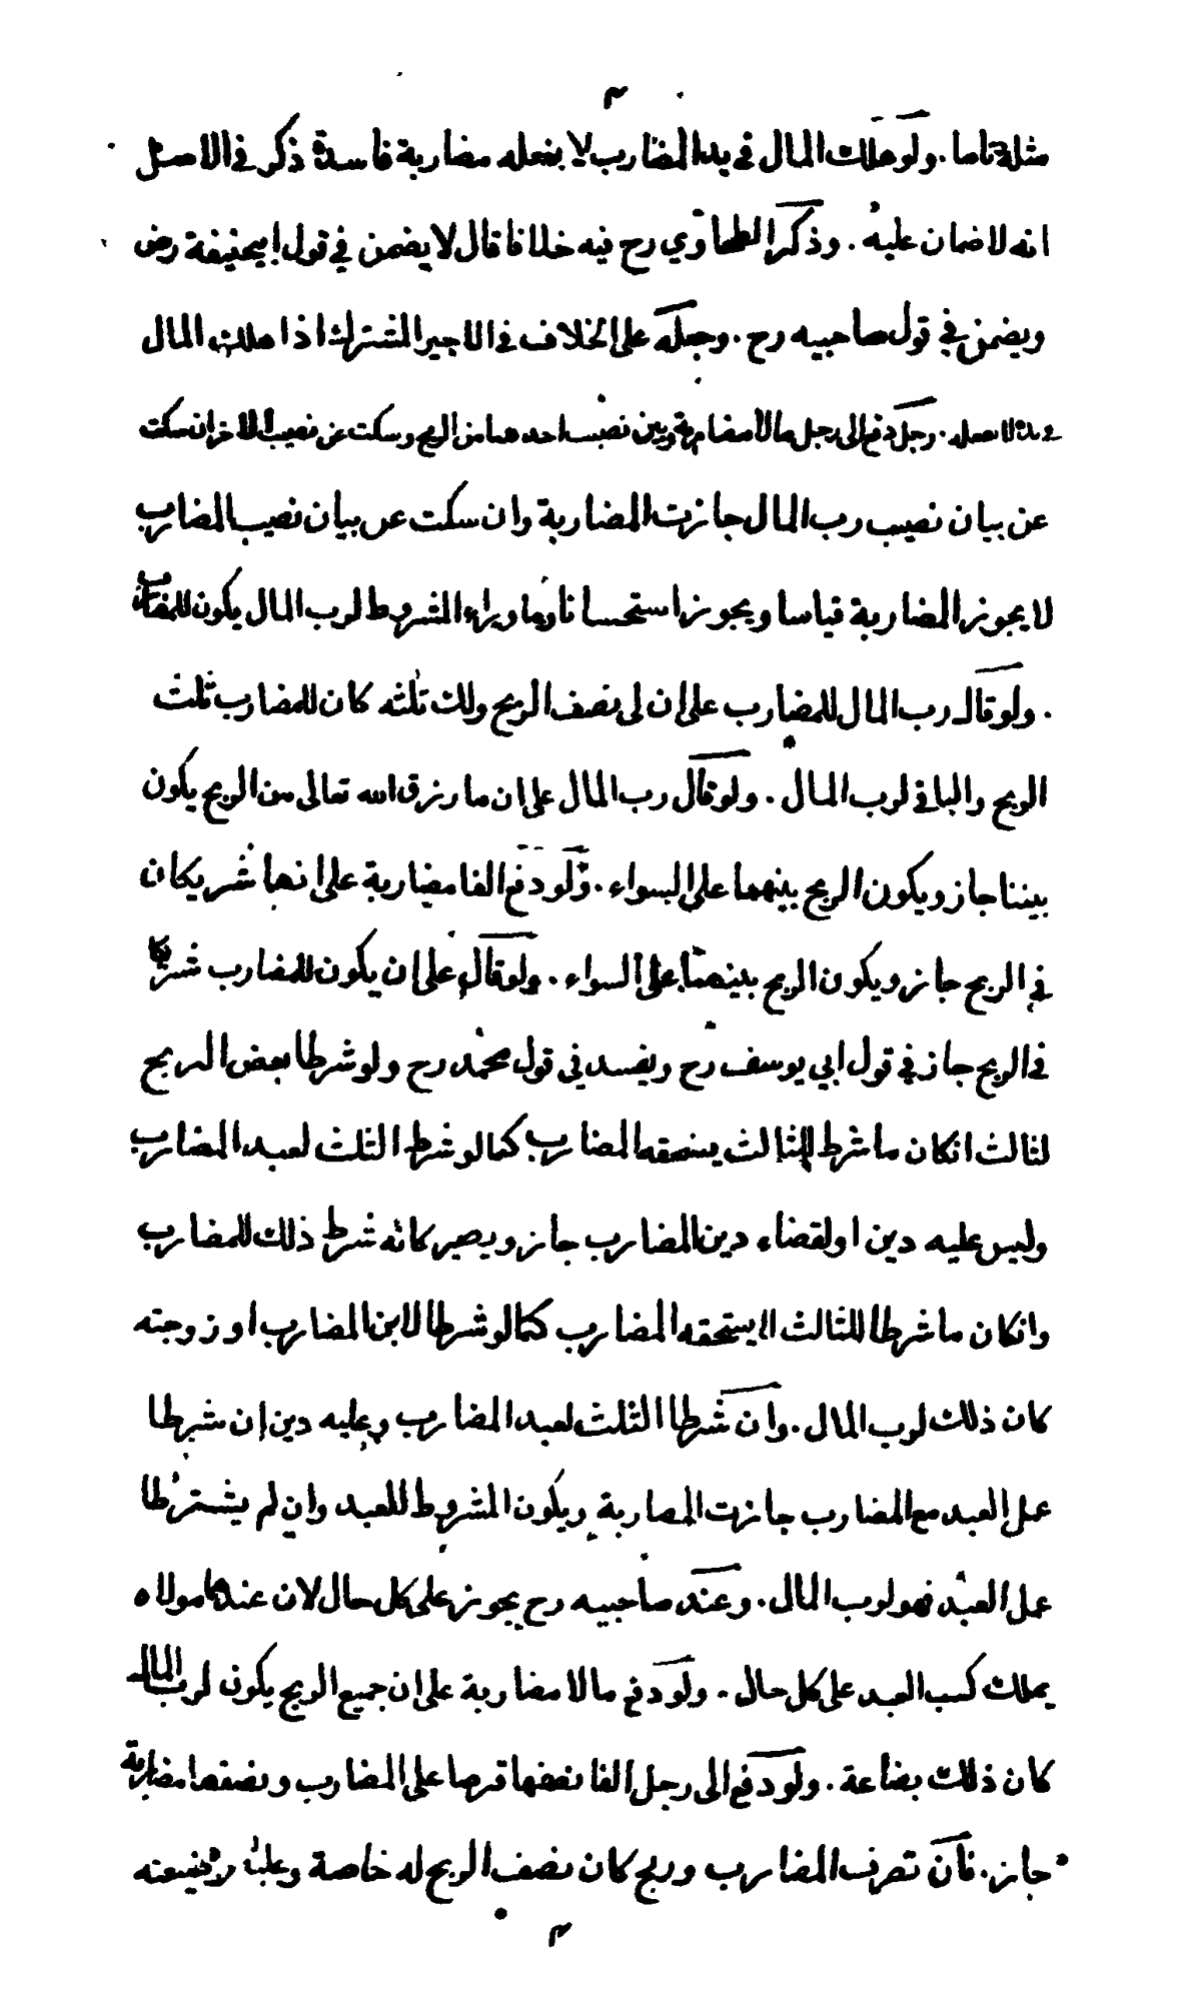 ٣
مثله تاما . ولو هلك المال في يد المضارب لا بفعله مضاربة فاسدة ذكر في الاصل
انه لا ضمان عليه . وذكر الطحاوي رح فيه خلافا قال لا يضمن في قول ابيحنيفة رض
ويضمن في قول صاحبيه رح . وجعله على الخلاف في الاجير المشترك اذا هلك المال
في يده لا بعمله . رجل دفع الى رجل مالا مضاربة وبين نصيب احدهما من الربح وسكت عن نصيب الاخر ان سكت
عن بيان نصيب رب المال جازت المضاربة وان سكت عن بيان نصيب المضارب
لا يجوز المضاربة قياسا ويجوز استحسانا وما وراء المشروط لرب المال يكون للمضارب
. ولو قال رب المال للمضارب على ان لى نصف الربح ولك ثلثه كان للمضارب ثلث
الربح والباقي لرب المال . ولو قال رب المال على ان ما رزق الله تعالى من الربح يكون
بيننا جاز ويكون الربح بينهما على السواء . ولو دفع الفا مضاربة على انهما شريكان
في الربح جاز ويكون الربح بينهما على السواء . ولو قال على ان يكون للمضارب شركا
في الربح جاز في قول ابي يوسف رح ويفسد في قول محمد رح ولو شرطا بعض الربح
لثالث انكان ما شرط للثالث يستحقه المضارب كما لو شرط الثلث لعبد المضارب
وليس عليه دين او لقضاء دين المضارب جاز ويصير كانه شرط ذلك للمضارب
وانكان ما شرطا للثالث لا يستحقه المضارب كما لو شرطا لابن المضارب او زوجته
كان ذلك لرب المال . وان شرطا الثلث لعبد المضارب وعليه دين إن شرطا
عمل العبد مع المضارب جازت المضاربة ويكون المشروط للعبد وان لم يشترطا
عمل العبد فهو لرب المال . وعند صاحبيه رح يجوز على كل حال لان عندهما مولاه
يملك كسب العبد على كل حال . ولو دفع مالا مضاربة على ان جميع الربح يكون لرب المال
كان ذلك بضاعة . ولو دفع الى رجل الفا نصفها قرضا على المضارب ونصفها مضاربة
جاز . فان تصرف المضارب وربح كان نصف الربح له خاصة وعليه وضيعته
٣